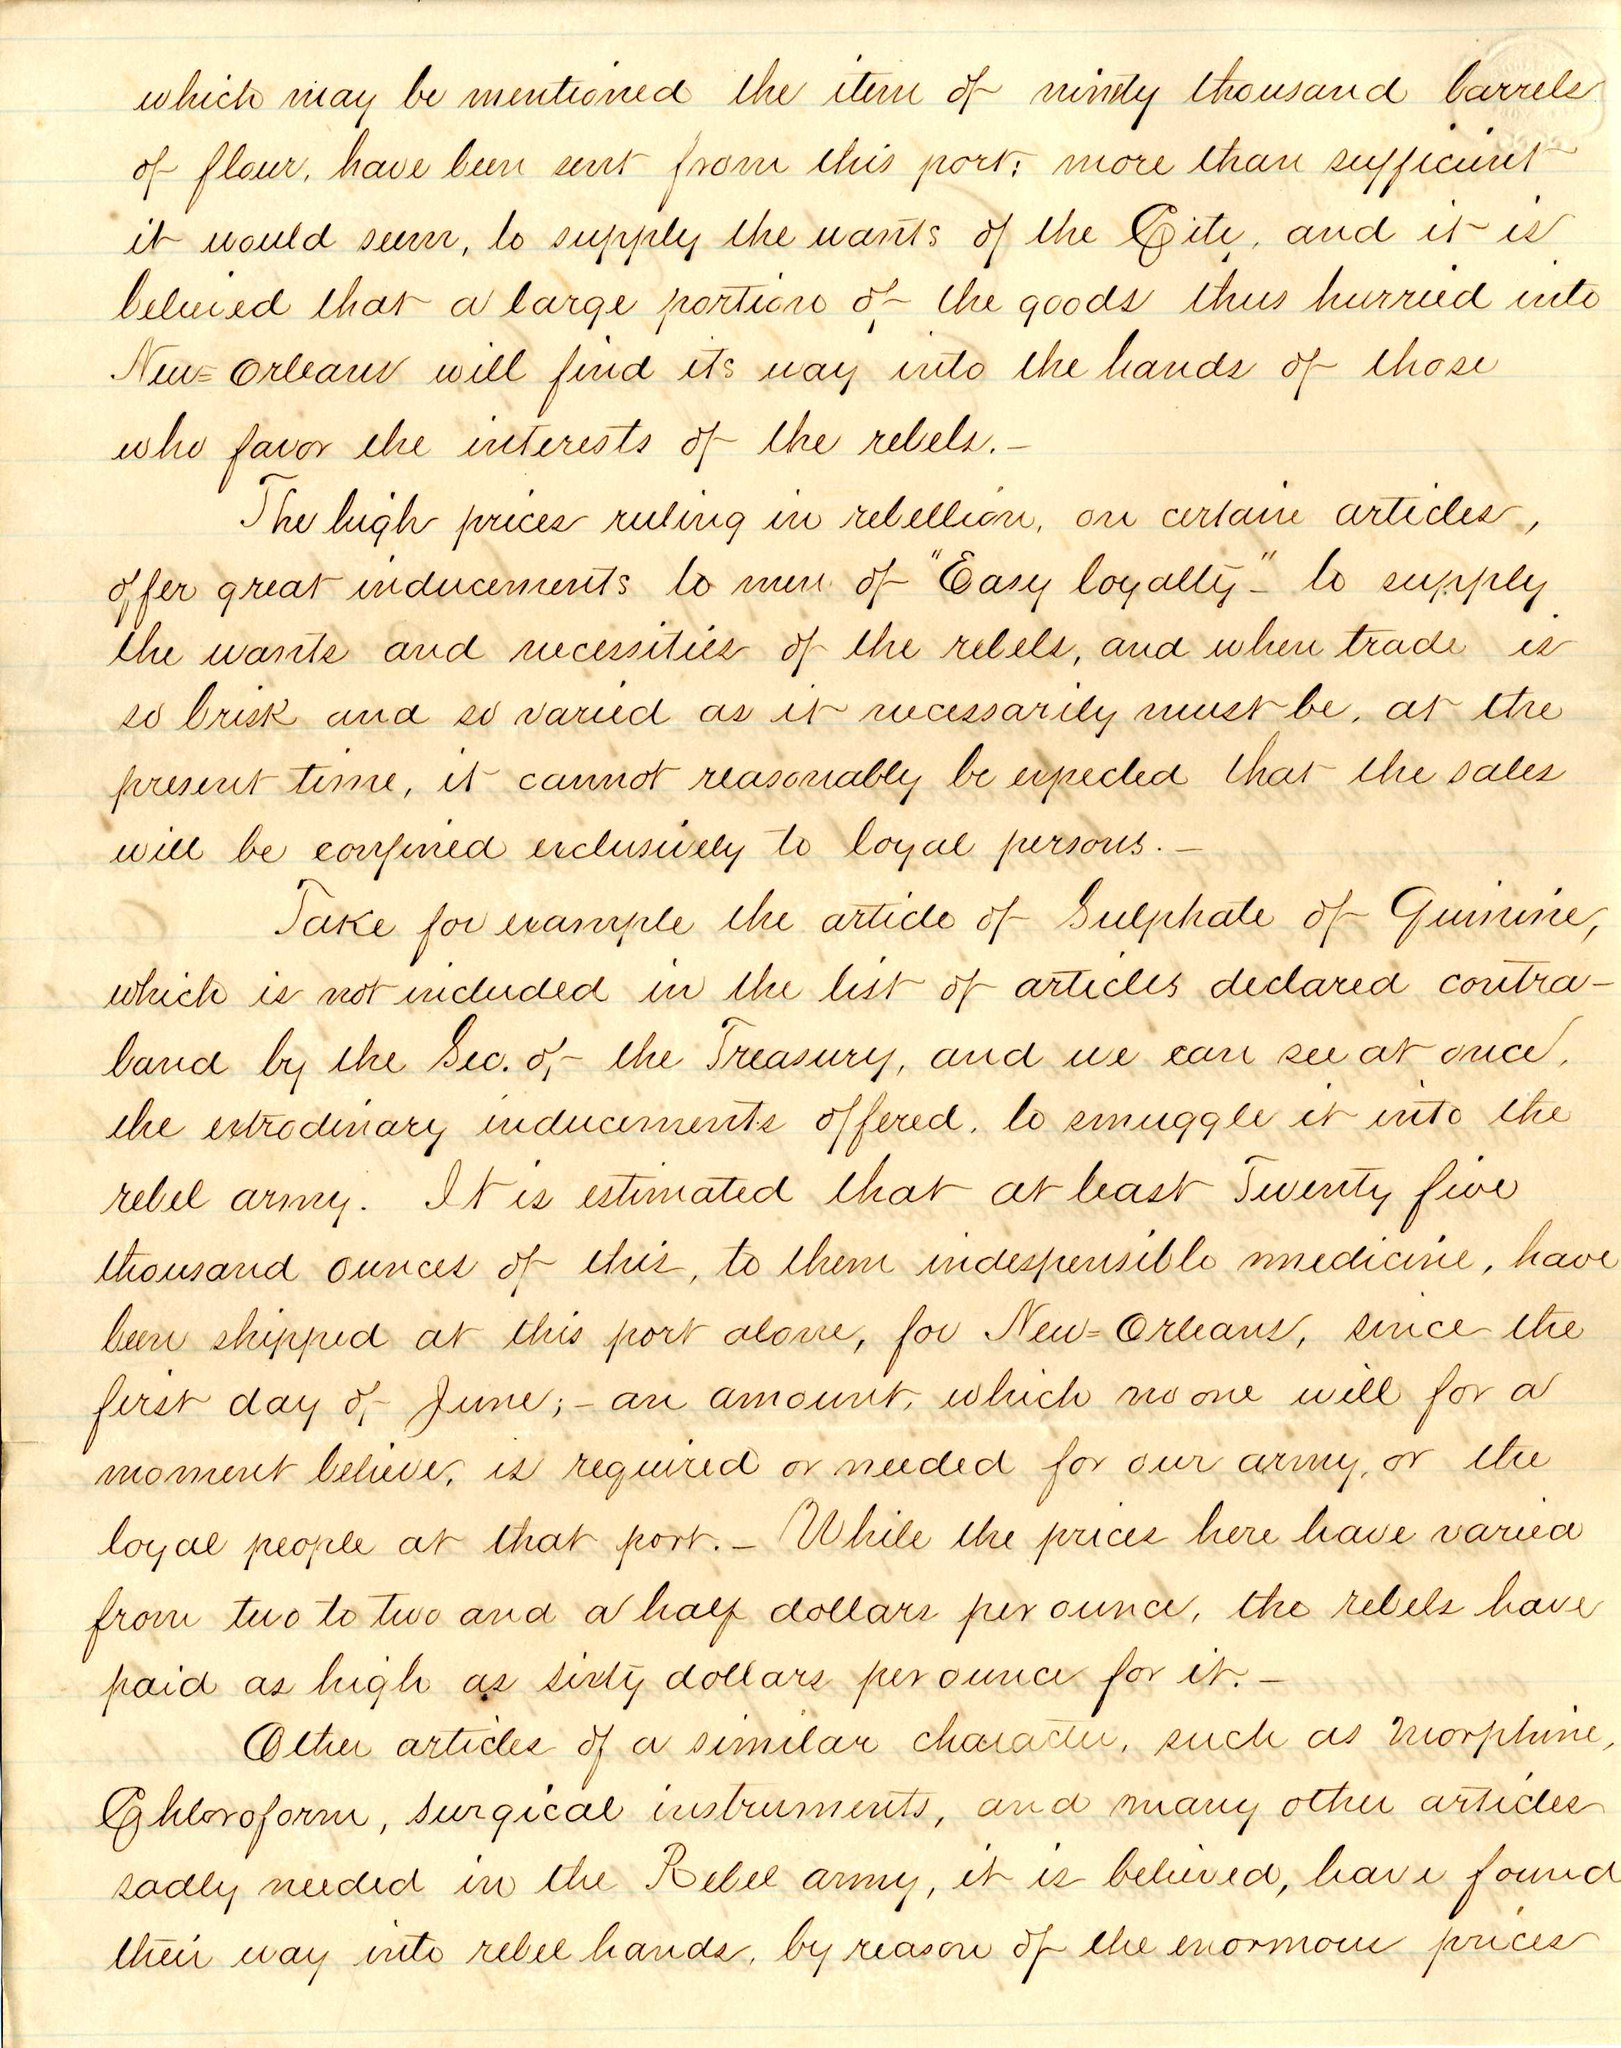 which may be mentioned the item of ninety thousand barrels
of flour, have been sent from this port; more than sufficient
it would seem, to supply the wants of the City, and it is
believed that a large portion of the goods thus hurried into
New=Orleans will find its way into the hands of those
who favor the interests of the rebels.–
The high prices ruling in rebellion, on certain articles,
offer great inducements to men of "Easy loyalty"– to supply
the wants and necessities of the rebels, and when trade is
so brisk and so varied as it necessarily must be, at the
present time, it cannot reasonably be expected that the sales
will be confined exclusively to loyal persons.–
Take for example the article of Sulphate of Quinine,
which is not included in the list of articles declared contra–
band by the Sec. of the Treasury, and we can see at once,
the extrodinary inducements offered, to smuggle it into the
rebel army. It is estimated that at least Twenty five
thousand ounces of this, to them indespensible medicine, have
been shipped at this port alone, for New=Orleans, since the
first day of June;– an amount, which no one will for a
moment believe, is required or needed for our army, or the
loyal people at that port.– While the prices here have varied
from two to two and a half dollars per ounce, the rebels have
paid as high as sixty dollars per ounce for it.–
Other articles of a similar character, such as Morphine,
Chloroform, surgical instruments, and many other articles
sadly needed in the Rebel army, it is believed, have found
their way into rebel hands, by reason of the enormous prices